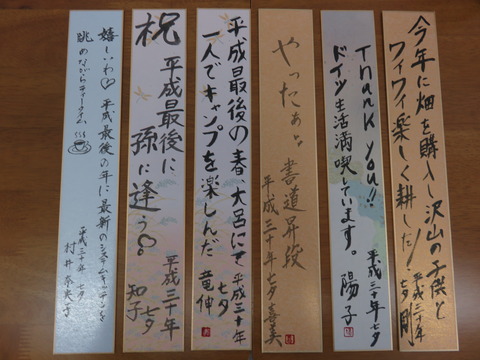 今年に畑を購入し沢山の子供と
ワイワイ楽しく耕した!
平成三十年
七夕 剛
Thank you!!
ドイツ生活満喫しています。
平成三十年七夕
陽子
やったぁよ
書道昇段
平成三十年 七夕 喜美
平成最後の春、大呂にて
一人でキャンプを楽しんだ
平成三十年
七夕 竜伸
祝
平成最後に
孫に逢う
平成三十年
七夕
知子
嬉しいわ 平成最後の年に最新のシステムキッチンを
眺めながらティータイム
平成三十年 七夕
村井